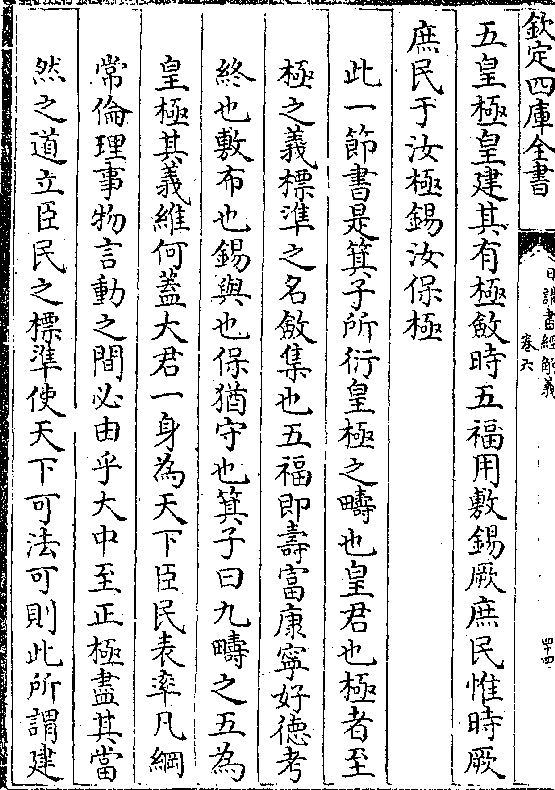 欽定四庫全書
日講書經解義
卷六
四十四
五皇極皇建其有極斂時五福用敷錫厥庶民惟時厥
庶民于汝極錫汝保極
此一節書是箕子所衍皇極之疇也皇君也極者至
極之義標準之名斂集也五福即壽富康寧好德考
終也敷布也錫與也保猶守也箕子曰九疇之五為
皇極其義維何蓋大君一身為天下臣民表率凡綱
常倫理事物言動之間必由乎大中至正極盡其當
然之道立臣民之標準使天下可法可則此所謂建